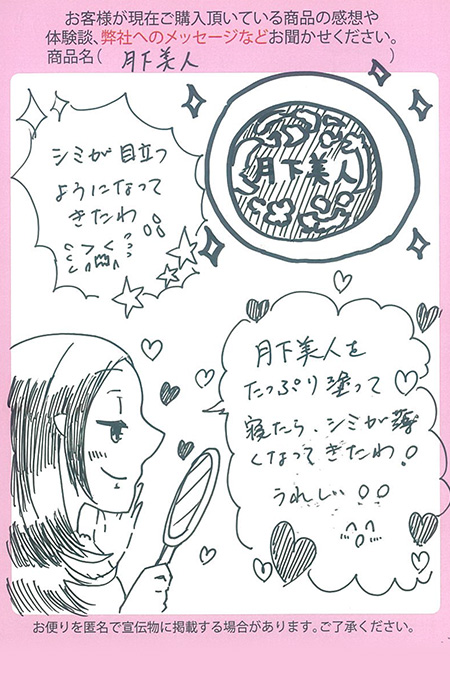 お客様が現在ご購入頂いている商品の感想や
体験談、弊社へのメッセージなどお聞かせください。
商品名( 月下美人 )
シミが目立つ
ようになって
きたわ
月下美人
月下美人を
たっぷり塗って
寝たら、シミが薄
くなってきたわ!
うれしい
お便りを匿名で宣伝物に掲載する場合があります。ご了承ください。